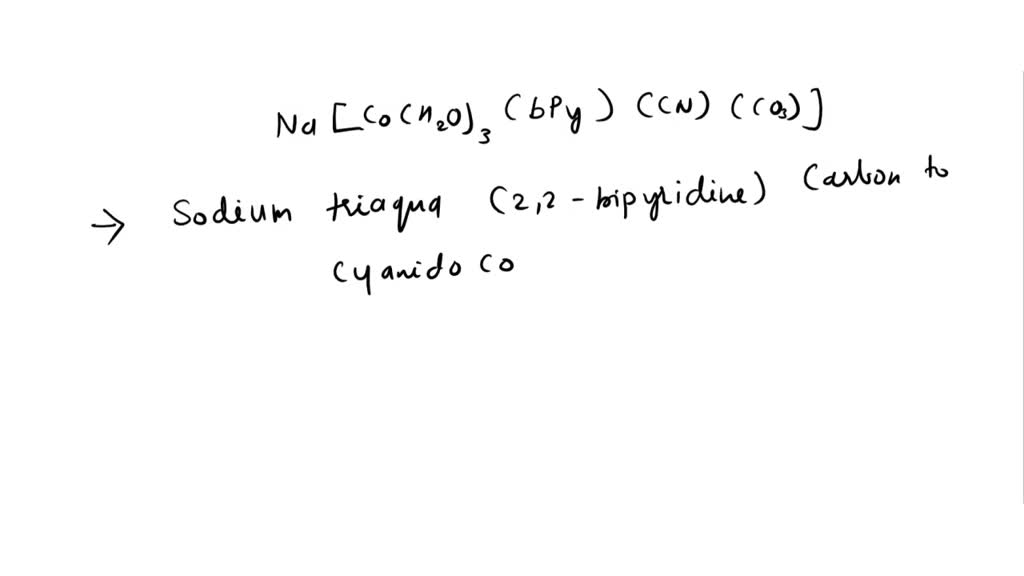 Na [Co(H₂O)₃ (bpy) (CN) (CO₃)]
→ Sodium triaqua (2,2-bipyridine) Carbon to
Cyanido Co